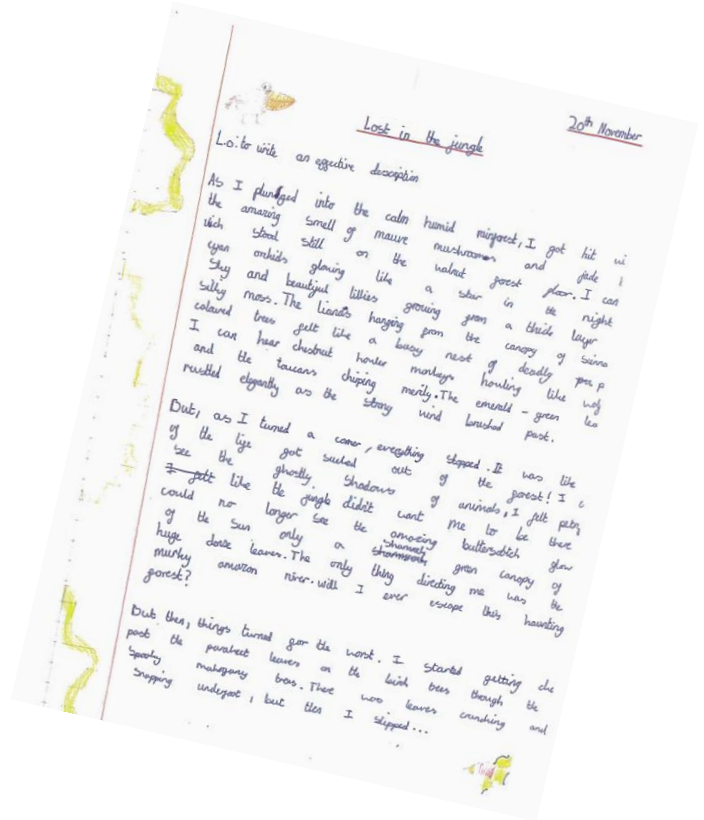 20th November
Lost in the jungle
L.o: to write an effective description
As I plundged into the calm humid rainforest, I got hit wi
the amazing smell of mauve mushrooms and jade
wich stood still on the walnut forest floor. I can
cyan orchids glowing like a star in the night
Sky and beautiful lillies growing from a thick layer
silky moss. The lianas hanging from the canopy of sienna
coloured trees felt like a busy nest of deadly
I can hear chestnut howler monkeys howling like
and the toucans chiping merily. The emerald-green lea
reustled elegantly as the strong wind brushed past.
But, as I turned a corner, everything stopped. It was like
of the life got sucked out of the forest! I
see the ghostly shadows of animals, I felt
I felt like the jungle didn't want me to be there
could no longer see the amazing butterscotch glow
of the sun only a green canopy of
huge leaves. The only thing directing me was the
murky amazon river. will I ever escape this haunting
forest?
But then, things turned for the worst. I started getting
past the parakeet leaves on the trees though the
Spooky mahogany trees. There was leaves crunching and
Snapping underfoot, but then I slipped...